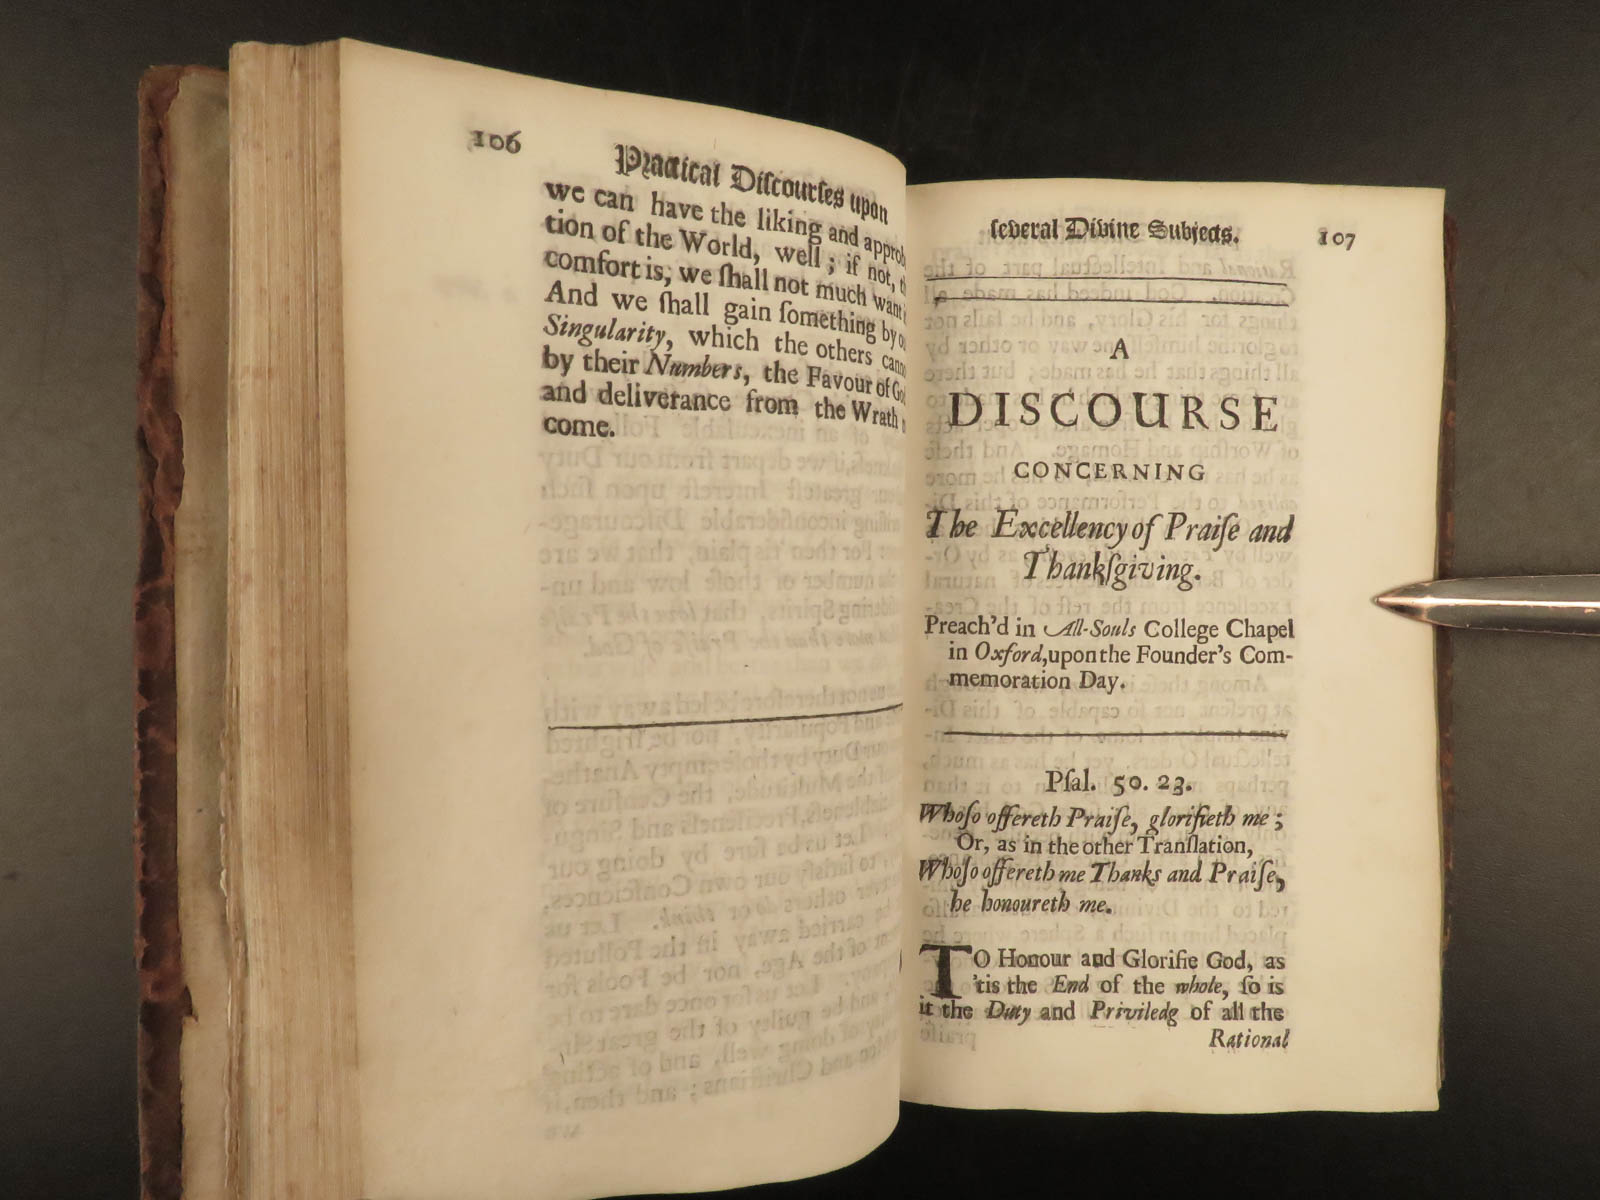 106
Practical Diſcourſes upon
we can have the liking and approb
tion of the World, well; if not, th
comfort is, we ſhall not much want i
And we ſhall gain ſomething by ou
Singularity, which the others cann
by their Numbers, the Favour of Go
and deliverance from the Wrath
come.
ſeveral Divine Subjects. 107
A
DISCOURSE
CONCERNING
The Excellency of Praiſe and
Thankſgiving.
Preach'd in All-Souls College Chapel
in Oxford, upon the Founder's Com-
memoration Day.
Pſal. 50. 23.
Whoſo offereth Praiſe, glorifieth me;
Or, as in the other Tranſlation,
Whoſo offereth me Thanks and Praiſe,
he honoureth me.
TO Honour and Glorifie God, as
'tis the End of the whole, ſo is
it the Duty and Priviledg of all the
Rational